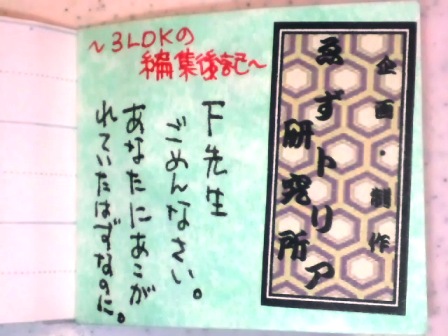 ～3LDKの
編集後記～
F先生
ごめんなさい。
あなたにあこが
れていたはずなのに。
企画・制作
ゑずトリア
研究所